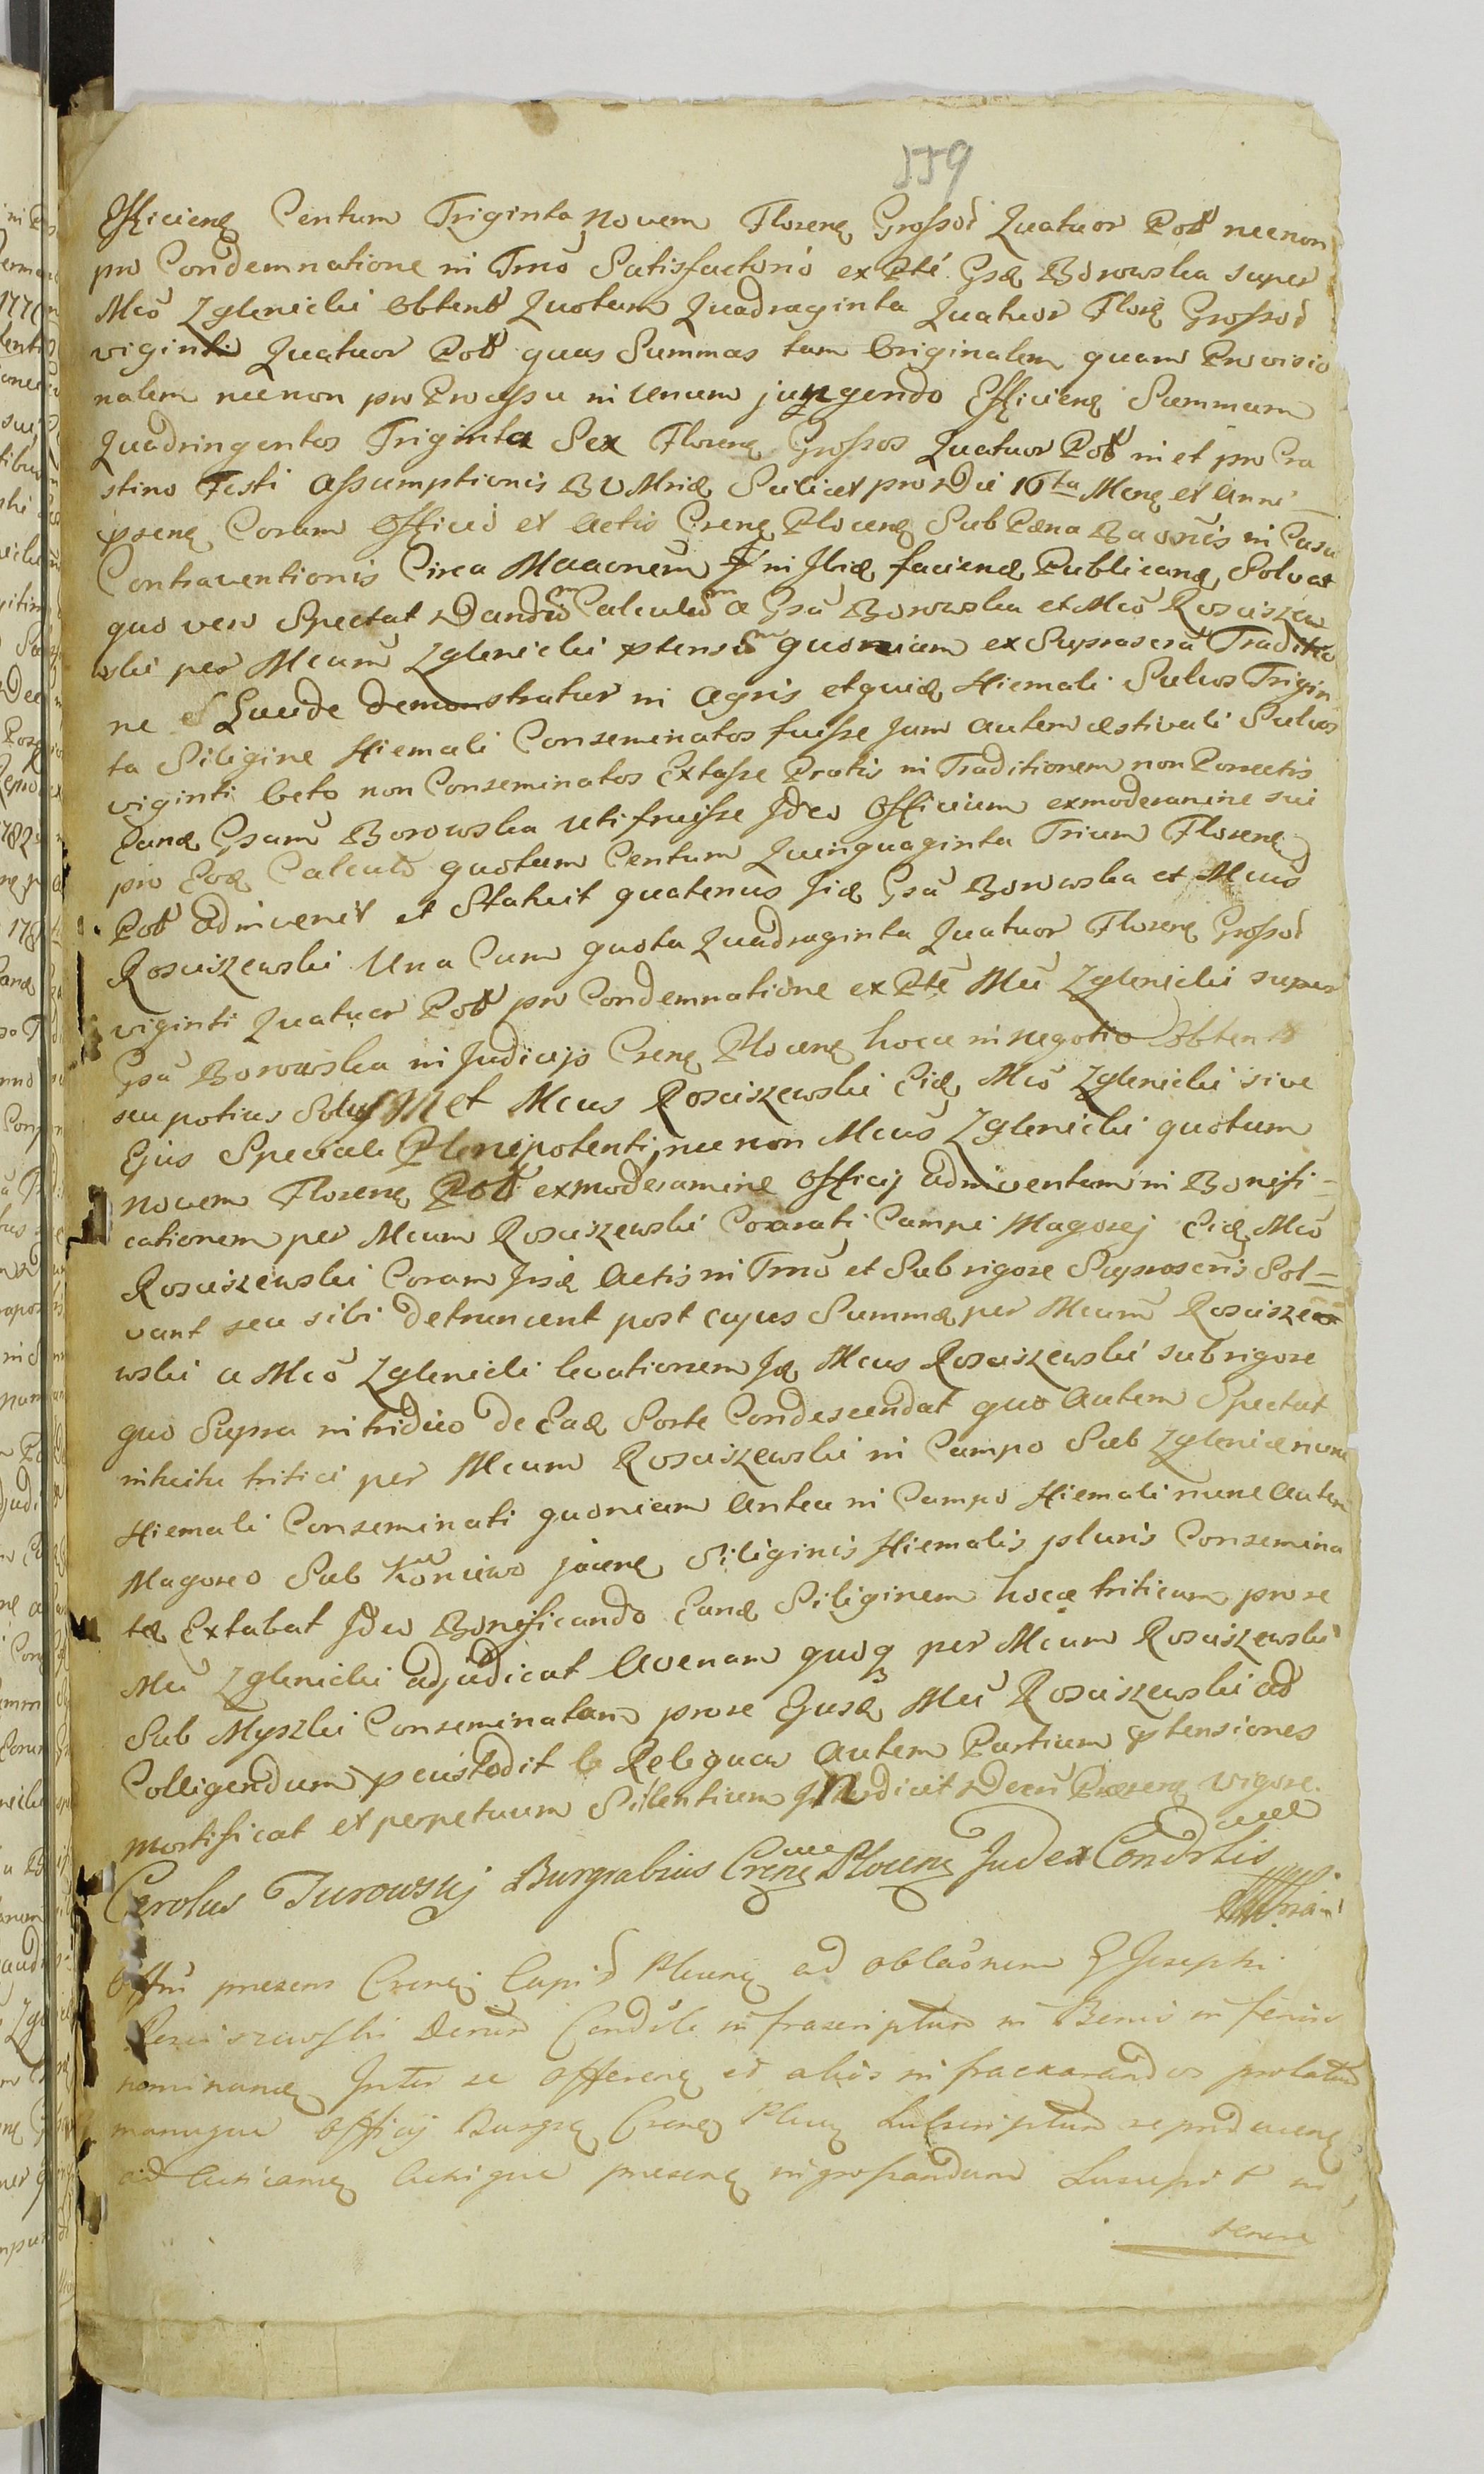 559
Efficienę Centum Triginta Novem Florenę Grossos Quatuor Poll necnon
pro Condemnatione in Trnō Satisfactorio ex Ptē Gsæ Borowska super
Mcō Zglenicki Obtentō Quotam Quadraginta Quatuor Florę Grossos
viginti Quatuor Poll quas Summas tam Originalem quam Provisio
nalem necnon pro Processu in Unum jungendo Efficienę Summam
Quadringentos Triginta Sex Florenę Grossos Quatuor Poll in et pro Cra
stino Festi Assumptionis BVMriæ Scilicet pro Die 16ta Mensę et Anni
psenę Coram Officio et Actis Crenę Plocenę Sub Pæna Baōnis in Casu
Contraventionis Circa in faciend Publicand Solvat
quo vero Spectat Dandū Calculū a Gsā Borowska et Mcō Rosciszew
ski per Mcum Zglenicki ptensū quoniam ex Suprascrā Traditio
ne et Laude demonstratur in Agris etquid Hiemali Sulcos Trigin
ta Siligine Hiemali Conseminatos fuisse Jam autem æstivali Sulcos
viginti Octo non Conseminatos Extasse Pratis in Traditionem non Porrectis
Eand Gsam Borowska uti fruisse Ideo Officium ex moderamine sui
pro Eod Calculo quotam Centum Quinquaginta Trium Florenę
Poll adinvenit et Statuit quatenus Gsā Borowska et Mcus
Rosciszewski Una Cum quota Quadraginta Quatuor Florenę Grossos
viginti Quatuor Poll pro Condemnatione ex Ptē Mci Zglenicki super
Gsā Borowska in Judicijs Crenę Plocenę hocce in negotio Obtentō
seu potius Solus Met Mcus Rosciszewski Eid Mcō Zglenicki sive
Ejus Speciali Plenipotenti, necnon Mcus Zglenicki quotam
novem Florenę Poll ex moderamine Officij adinventam in Bonifi=
cationem per Mcum Rosciszewski Coarati Campi Magorej Eid Mcō
Rosciszewski Coram Actis in Trnō et Sub rigore Suprascris Sol=
vant seu sibi detruncent post cujus Summæ per Mcum Rosciszew
wski a Mcō Zglenicki levationem Id Mcus Rosciszewski sub rigore
quo Supra in triduo de Ead Sorte Condescendat quo Autem Spectat
intuitu tritici per Mcum Rosciszewski in Campo Sub Zglenice nunc
Hiemali Conseminati quoniam Antea in Campo Hiemali nunc Autem
Magoreo Sub Koniewo jacenę Siliginis Hiemalis pluris Consemina
tæ Extabat Ideo Bonificando Eand Siliginem hocce triticum pro se
Mci Zglenicki adjudicat Avenam quoq per Mcum Rosciszewski
Sub Myszki Conseminatam pro se Ejusd Mci Rosciszewski ad
Colligendum pcustodit Reliquas Autem Partium ptensiones
mortificat et perpetuum Silentium Indicit Decrī Præsenę vigore.
Carolus Turowskj Burgrabius Crenę Plocenę Judex Condrlis
mpp
Offm presens Crenę Capit Plocenę ad oblaōnem G Josephi
Rosciszewski Decrm Condrle infrascriptum in Bonis inferius
nominandę Inter se Offerenę et alios infraexarandos prolatum
manuque Officij Burgrę Crenę Plocę Subscriptum reproducenę
ad acticandę Actisque presenę ingrossandum Suscepit in
tenore